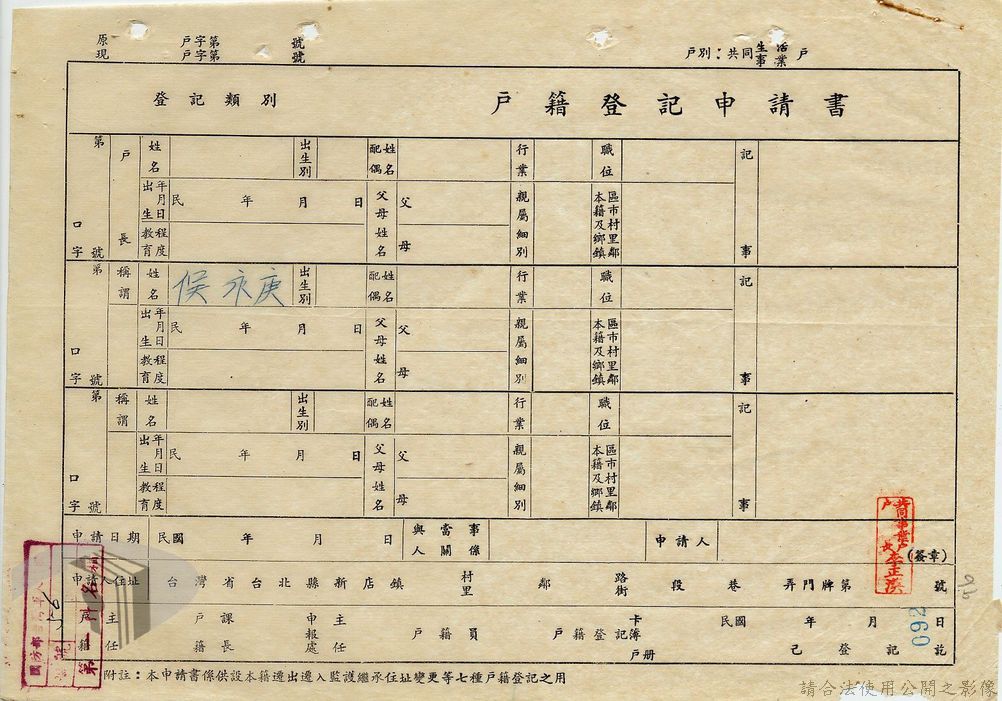 原 戶字第 號
現 戶字第 號
戶別：共同生活戶
事業
登記類別
戶籍登記申請書
第 口字 號
戶長 姓名 出生別 配偶姓名 行業 職位 記事
出生年月日 民 年 月 日 父母姓名 父 母 親屬細別 本籍及鄉鎮區市村里鄰
教育程度
第 口字 號
稱謂 姓名 侯永庚 出生別 配偶姓名 行業 職位 記事
出生年月日 民 年 月 日 父母姓名 父 母 親屬細別 本籍及鄉鎮區市村里鄰
教育程度
第 口字 號
稱謂 姓名 出生別 配偶姓名 行業 職位 記事
出生年月日 民 年 月 日 父母姓名 父 母 親屬細別 本籍及鄉鎮區市村里鄰
教育程度
申請日期 民國 年 月 日 與當事人關係 申請人 (簽章)
共同事業戶
戶長李正漢
申請人住址 台灣省台北縣新店鎮 村里 鄰 路街 段 巷 弄門牌第 號
戶籍主任 戶籍課長 申報處主任 戶籍員 戶籍登記卡簿戶册 民國 年 月 日
己登記訖
092
國防部
第一
附註：本申請書係供設本籍遷出遷入監護繼承住址變更等七種戶籍登記之用
請合法使用公開之影像